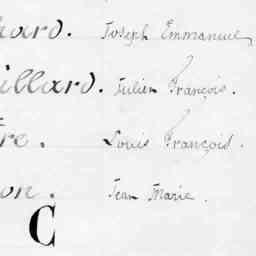 hard. Joseph Emmanuel
illard. Julien François.
re. Louis François.
on. Jean Marie.
C